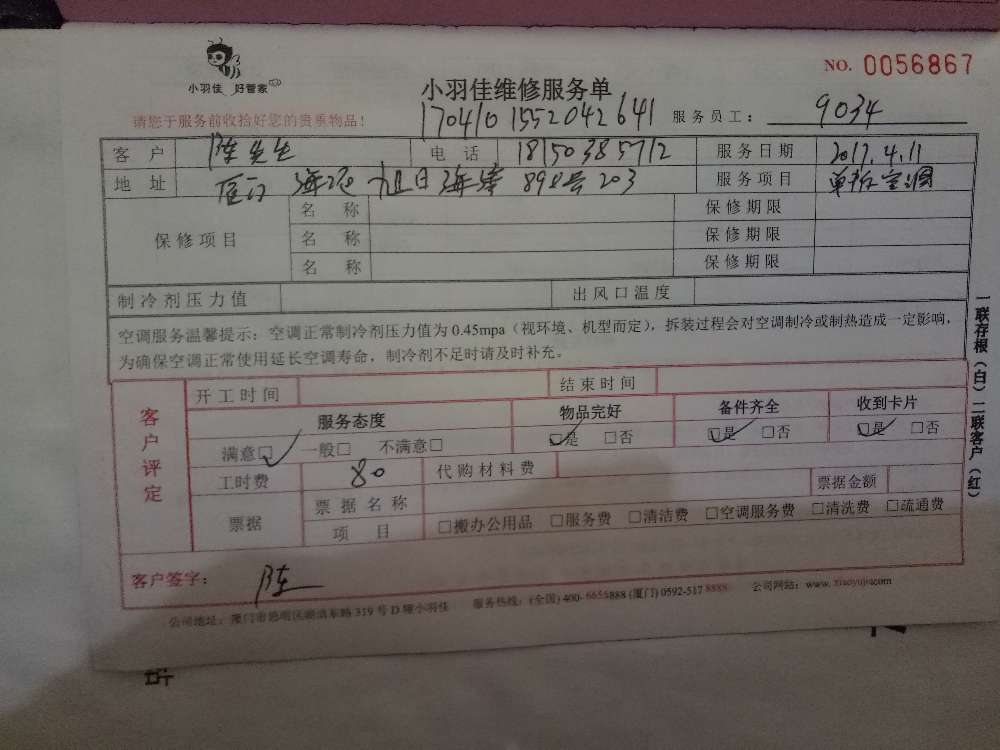 小羽佳 好管家
NO. 0056867
小羽佳维修服务单
1704101552042641 服务员工： 9034
请您于服务前收拾好您的贵重物品！
客 户 陈先生 电 话 18150385712 服务日期 2017.4.11
地 址 厦门 海沧 旭日海湾 898号203 服务项目 单拆空调
保修项目 名 称 保修期限
名 称 保修期限
名 称 保修期限
制冷剂压力值 出风口温度
空调服务温馨提示：空调正常制冷剂压力值为 0.45mpa（视环境、机型而定），拆装过程会对空调制冷或制热造成一定影响，
为确保空调正常使用延长空调寿命，制冷剂不足时请及时补充。
客户评定
开工时间 结束时间
服务态度 物品完好 备件齐全 收到卡片
满意□ 一般□ 不满意□ □是 □否 □是 □否 □是 □否
工时费 80 代购材料费
票据 票据名称 票据金额
项 目 □搬办公用品 □服务费 □清洁费 □空调服务费 □清洗费 □疏通费
客户签字： 陈
公司地址：厦门市思明区湖滨东路 319 号 D 幢小羽佳 服务热线：(全国) 400-6655888 (厦门) 0592-517 8888 公司网站：www. xiaoyujia.com
一联存根（白）二联客户（红）